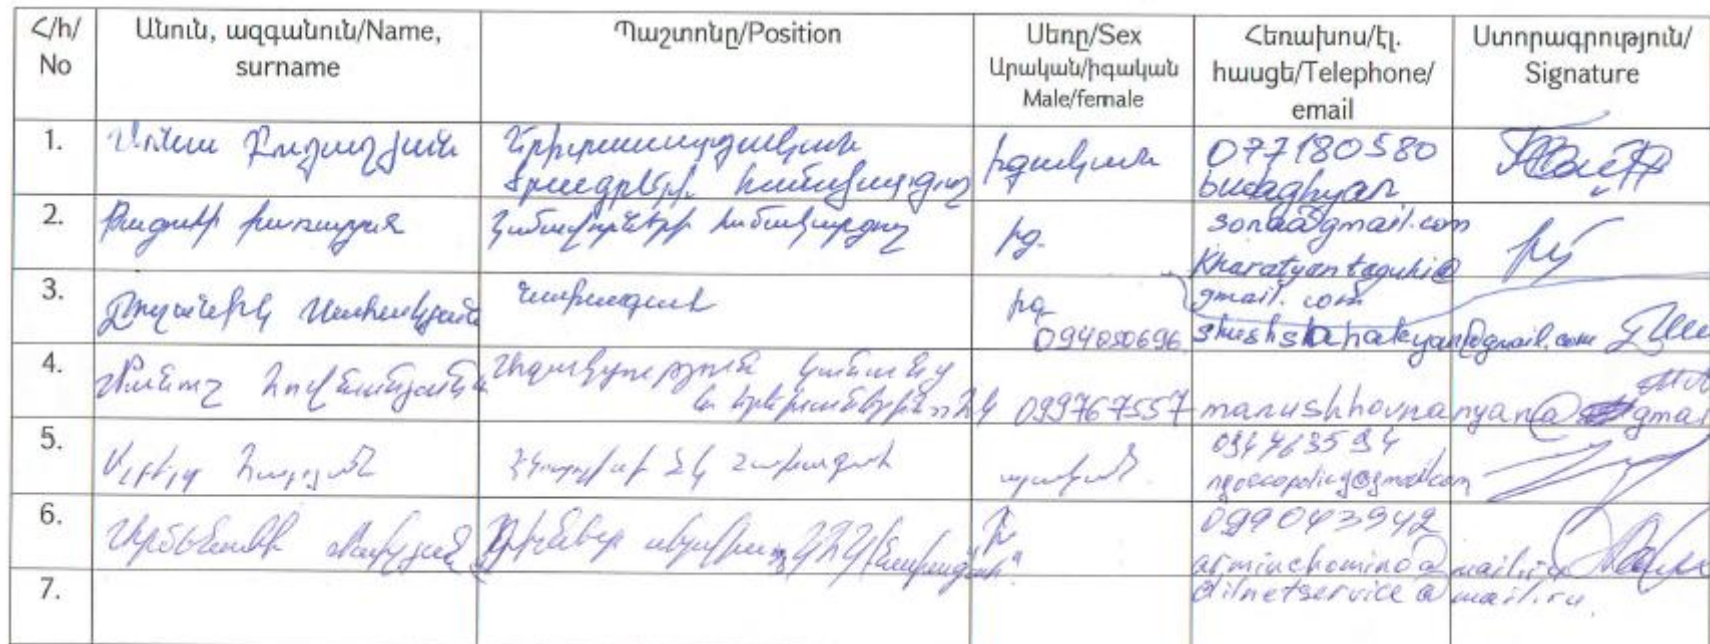 Հ/հ/ No
Անուն, ազգանուն/Name, surname
Պաշտոնը/Position
Սեռը/Sex
Արական/իգական
Male/female
Հեռախոս/էլ.
հասցե/Telephone/
email
Ստորագրություն/
Signature
1.
Երիտասարդական
ծրագրերի համակարգող
իգական
077180580
budaghyan
sona@gmail.com
2.
Թագուհի Խառատյան
կամավորների համակարգող
իգ.
Kharatyantaguhi@
gmail.com
3.
Շուշանիկ Սահակյան
Նախագահ
իգ
094050696
shushsahakyan@gmail.com
4.
Մանուշ Հովնանյան
Աջակցություն կանանց
և երեխաներին ՀԿ
099767557
manushhovnanyan@gmai
5.
նախագահ
արական
ngoecopolicy@gmail.com
6.
Արմենուհի
ՀԿ նախագահ
099043942
arminehomino@mail.ru
dilnetservice@mail.ru
7.